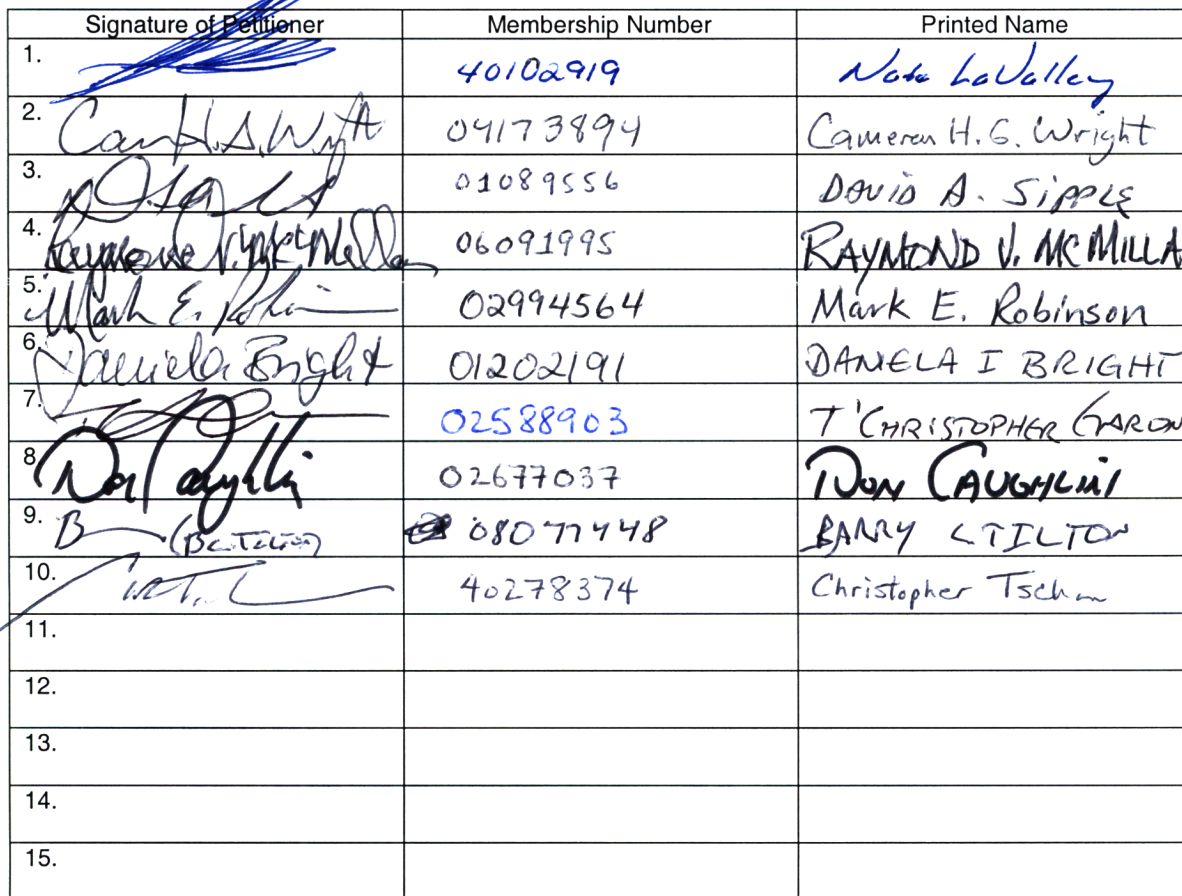 Signature of Petitioner Membership Number Printed Name
1. 40102919 Nate LaValley
2. Cam H.S. Wright 04173894 Cameron H. G. Wright
3. 01089556 DAVID A. SIPPLE
4. Raymond V. McMillan 06091995 RAYMOND V. MCMILLA
5. Mark E. Robin 02994564 Mark E. Robinson
6. Daniela Bright 01202191 DANIELA I BRIGHT
7. 02588903 T'CHRISTOPHER GARDN
8. Don Caughlin 02677037 DON CAUGHLIN
9. B (BC TILTON) 08077448 BARRY C TILTON
10. 40278374 Christopher Tschan
11.
12.
13.
14.
15.